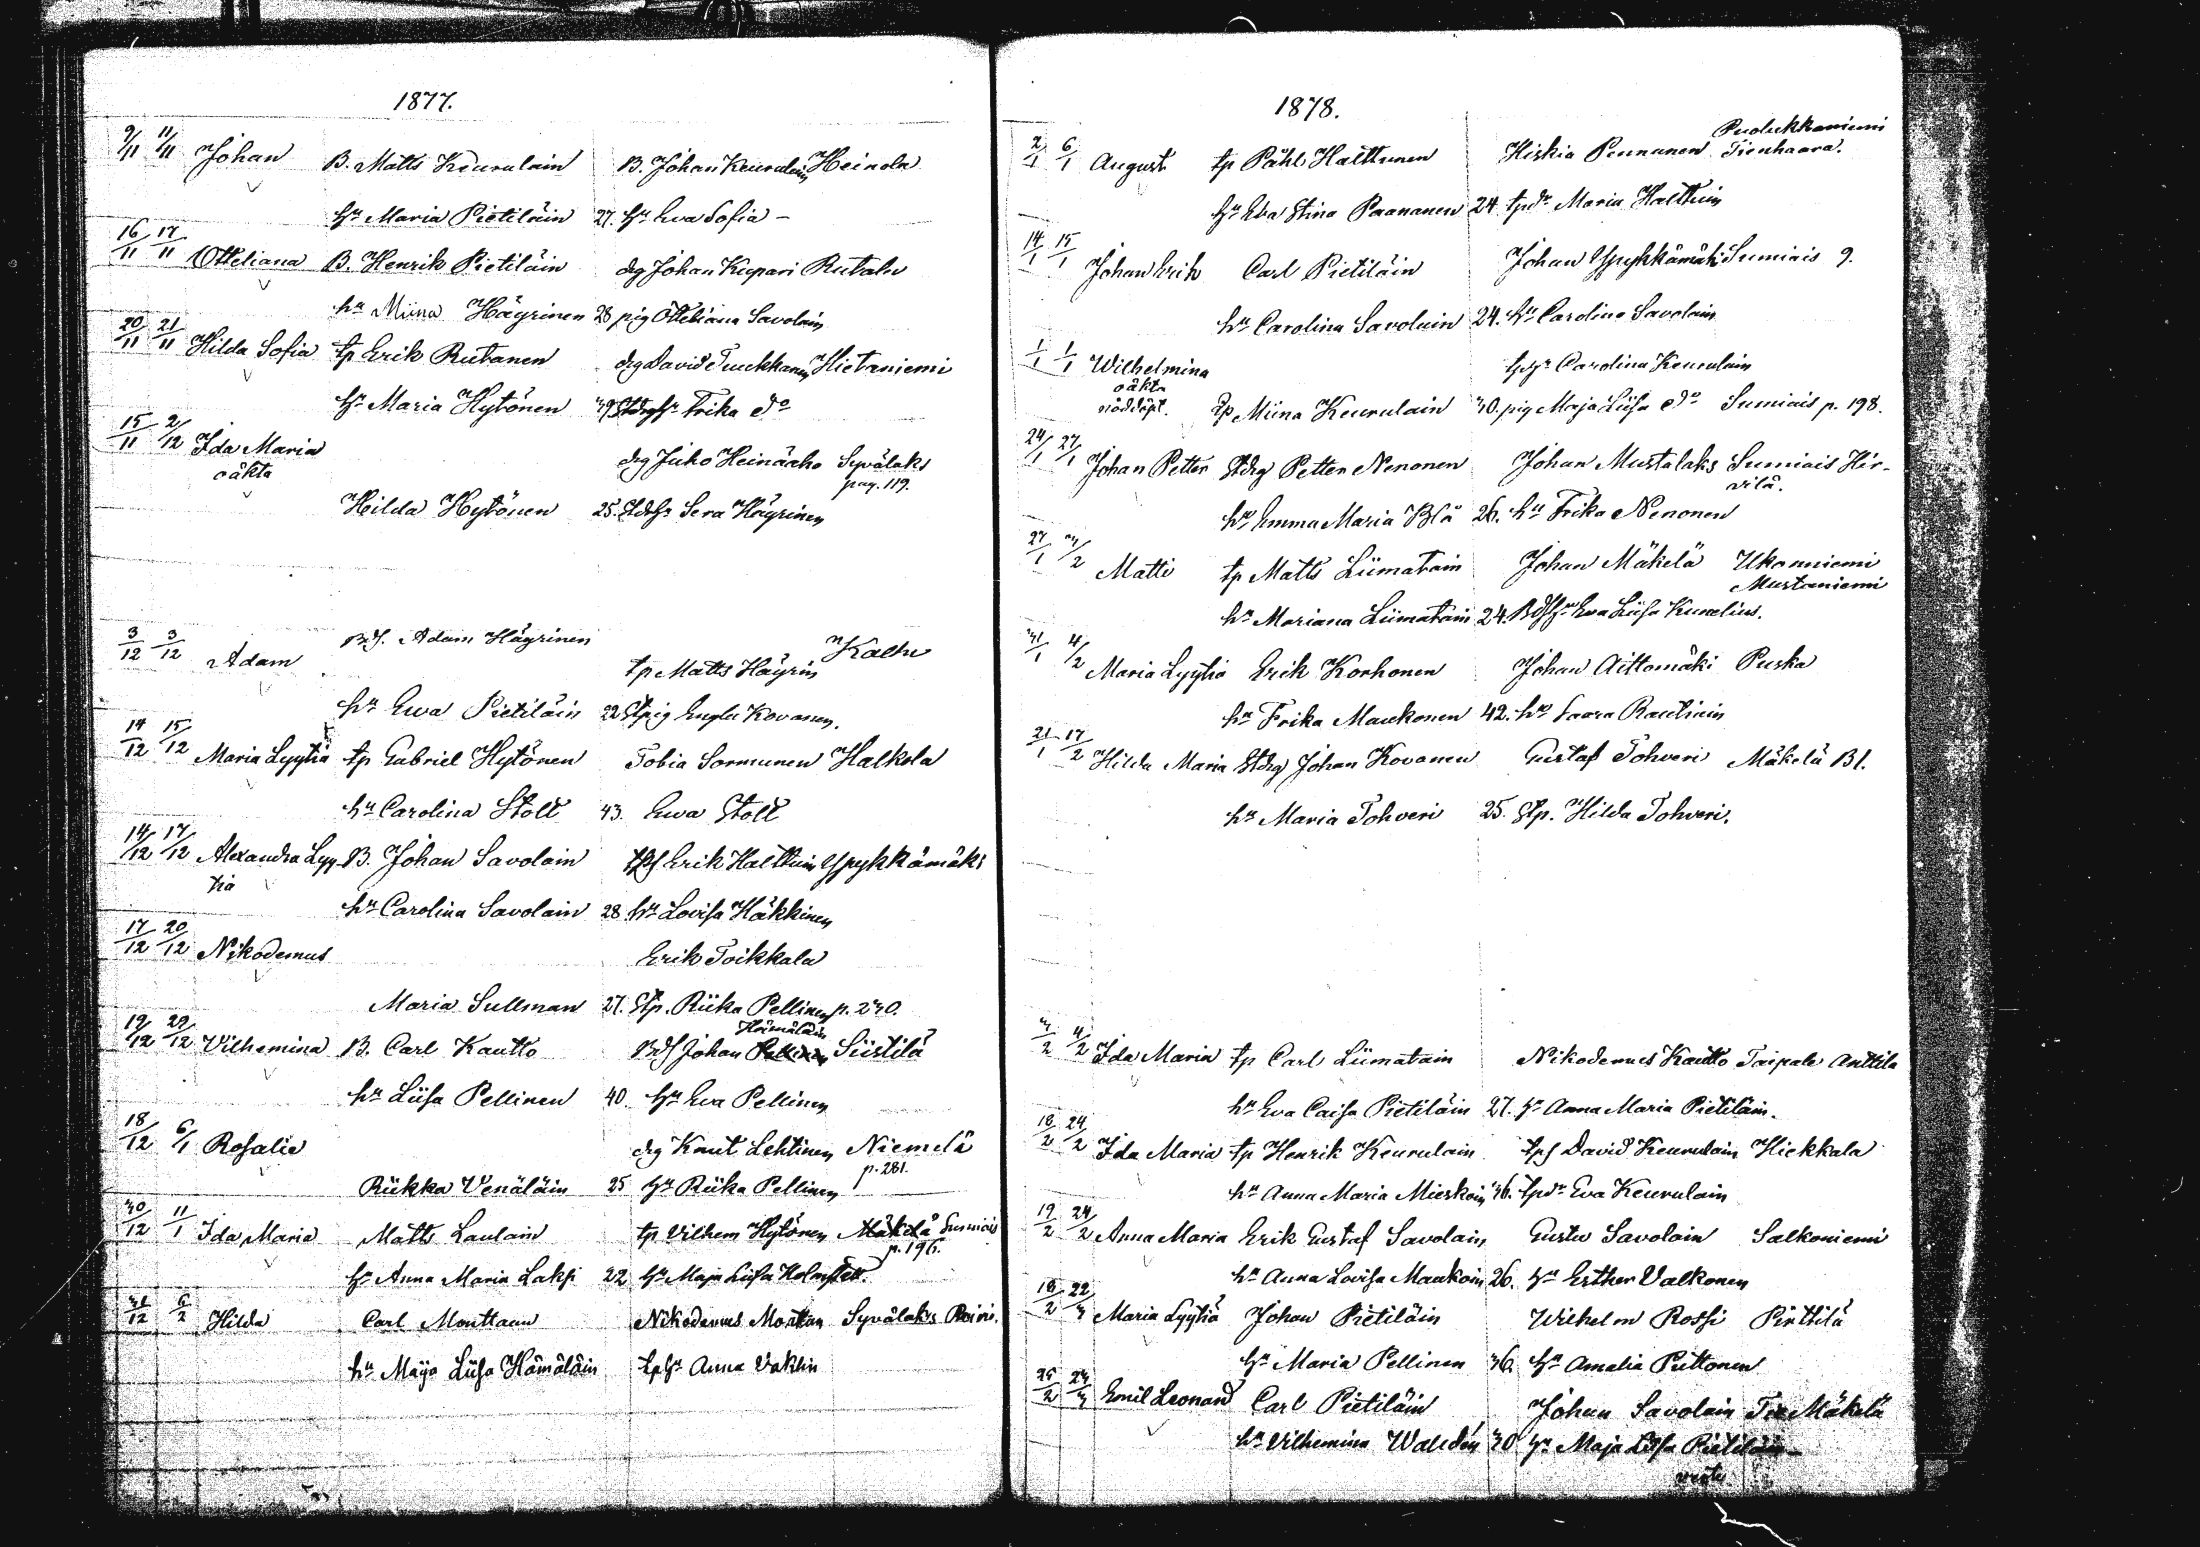 1877.
9/11 11/11 Johan B. Matts Keurulain B. Johan Keurulain Heinola
hu Maria Pietiläin 27. hu Eva Sofia –
16/11 17/11 Otteliana B. Henrik Pietiläin drg Johan Kupari Rutalu
hu Miina Häyrinen 28 pig Otteliana Savolain
20/11 21/11 Hilda Sofia tp Erik Rutanen drg David Tuukkanen Hietaniemi
hu Maria Hytönen 39 Frika do
15/11 2/12 Ida Maria drg Juho Heinäaho Syvälaks
oäkta pag. 119.
Hilda Hytönen 25. Sera Häyrinen
3/12 3/12 Adam Adam Häyrinen Kalhu
tp Matts Häyrin
hu Ewa Pietiläin 22 Stpig Engla Kovanen.
14/12 15/12 Maria Lyytia tp Gabriel Hytönen Tobia Sormunen Halkola
hu Carolina Stolt 43. Ewa Stolt
14/12 17/12 Alexandra Lyy- B. Johan Savolain Erik Halttuin Ypykkämäki
tia
hu Carolina Savolain 28 hu Lovisa Häkkinen
17/12 20/12 Nikodemus Erik Toikkala
Maria Sullman 27. Stp. Riika Pellinen p. 230.
Hämäläin
19/12 29/12 Vilhemina B. Carl Kautto Johan Pellinen Siistilä
hu Liisa Pellinen 40. hu Eva Pellinen
18/12 6/1 Rosalie drg Knut Lehtinen Niemelä
Riikka Venäläin 25 hu Riika Pellinen p. 281.
30/12 11/1 Ida Maria Matts Laulain tp Vilhem Hytönen Mäkelä Sumiais
p. 196.
hu Anna Maria Laksi 22 hu Maja Liisa
31/12 6/2 Hilda Carl Monttann Nikodemus Syvälaks
hu Maija Liisa Hämäläin Anna
1878.
Puolukkaniemi
2/1 6/1 August tp Påhl Halttunen Hiskia Pennanen Tienhaara.
hu Eva Stina Paananen 24 tpdr Maria Halttuin
14/1 15/1 Johan Erik Carl Pietiläin Johan Ypykkämäki Sumiais 9.
hu Carolina Savolain 24. hu Carolina Savolain
1/1 1/1 Wilhelmina Carolina Keurulain
oäkta
nöddöpt. Miina Keurulain 30. pig Maja Liisa do Sumiais p. 198.
24/1 27/1 Johan Petter Stdrg Petter Nenonen Johan Mustalaks Sumiais Hir-
vilä.
hu Emma Maria Blå 26. hu Frika Nenonen
27/1 3/2 Matti tp Matts Liimatain Johan Mäkelä Ukonniemi
Mustaniemi
hu Mariana Liimatain 24. Eva Liisa Kunelius.
31/1 4/2 Maria Lyytia Erik Korhonen Johan Aittomäki Puska
hu Frika Maukonen 42. hu Saara Rautiain
21/1 17/2 Hilda Maria Stdrg Johan Kovanen Gustaf Tohveri Mäkelä B1.
hu Maria Tohveri 25. Stp. Hilda Tohveri.
3/2 4/2 Ida Maria tp Carl Liimatain Nikodemus Kautto Taipale Anttila
hu Eva Caisa Pietiläin 27. hu Anna Maria Pietiläin.
18/2 24/2 Ida Maria tp Henrik Keurulain tps David Keurulain Hiekkala
hu Anna Maria Mieskoin 36. tpdr Eva Keurulain
19/2 24/2 Anna Maria Erik Gustaf Savolain Gustav Savolain Salkoniemi
hu Anna Lovisa Maukoin 26. hu Esther Valkonen
18/2 22/3 Maria Lyytia Johan Pietiläin Wilhelm Rossi Pirttilä
hu Maria Pellinen 36 hu Amalia Puttonen
25/2 24/3 Emil Leonard Carl Pietiläin Johan Savolain Mäkelä
hu Vilhemina Walldén 30 hu Maja Liisa Pietiläin